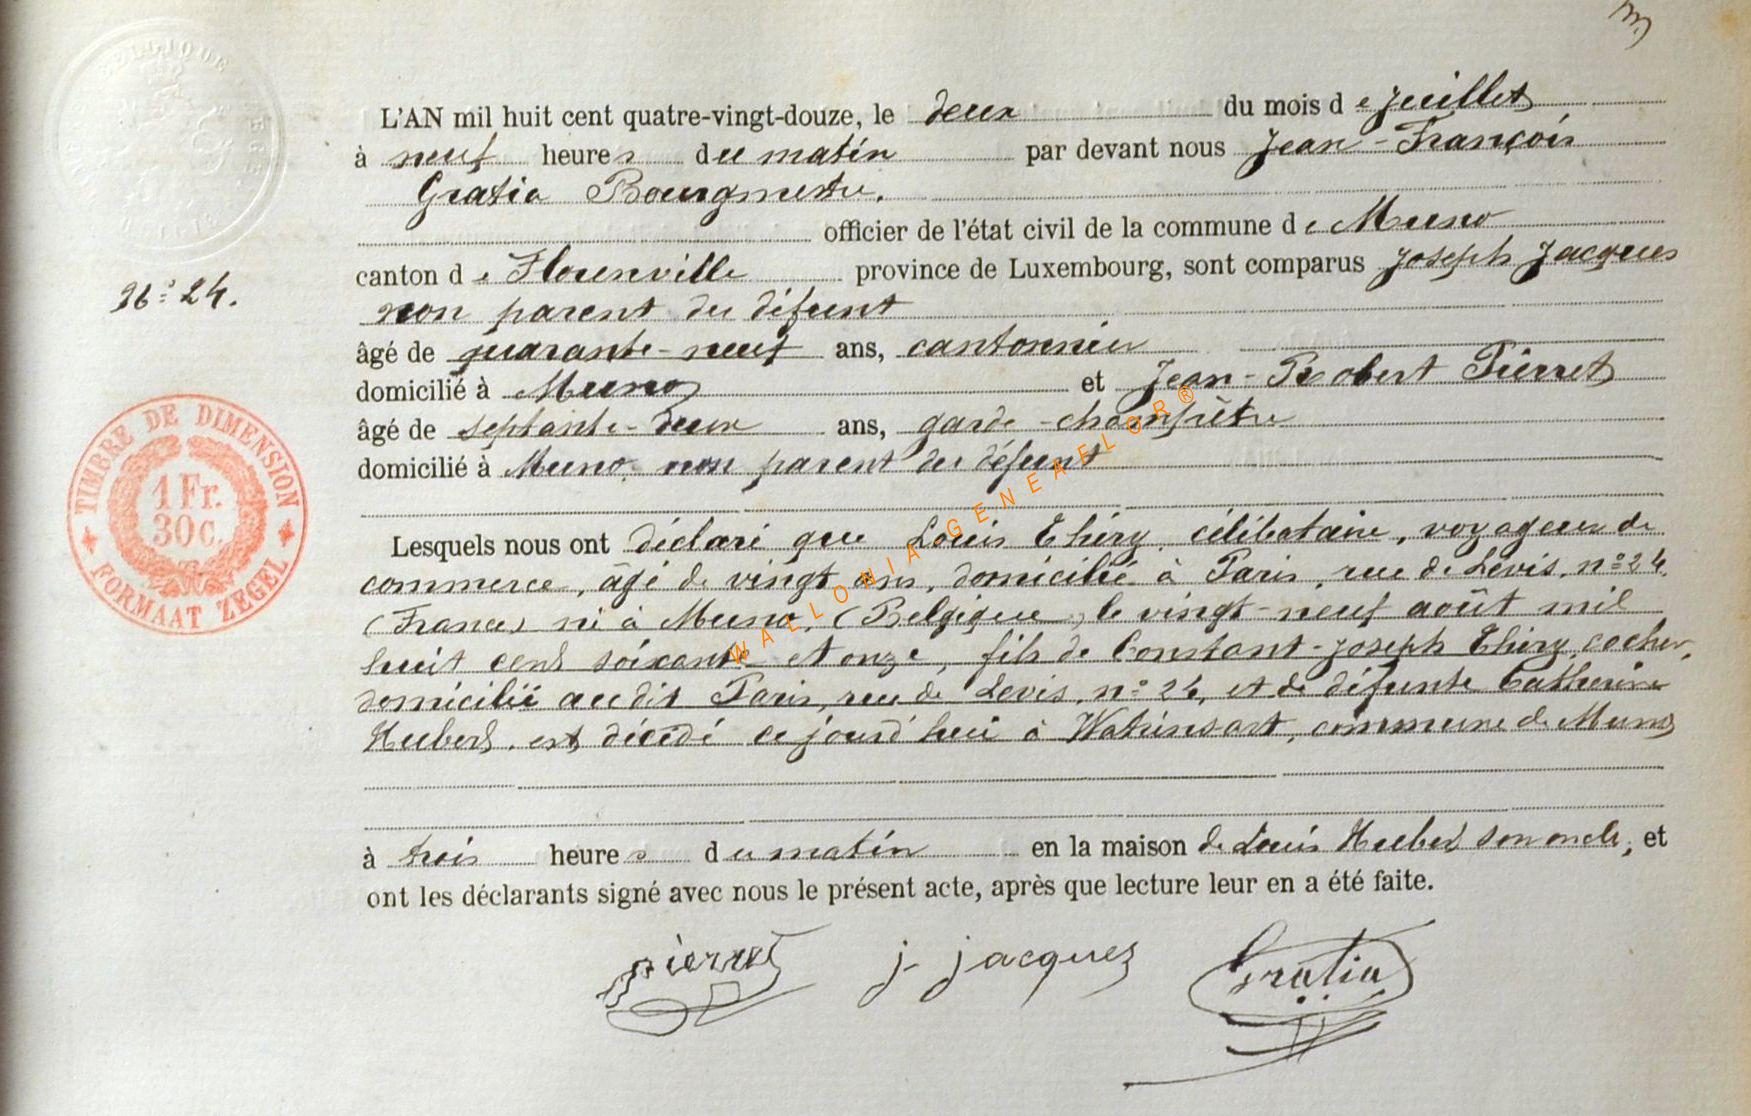 BELGIQUE
L'AN mil huit cent quatre-vingt-douze, le deux du mois de juillet
à neuf heures du matin par devant nous Jean-François
Gratia Bourgmestre.
officier de l'état civil de la commune de Muno
canton de Florenville province de Luxembourg, sont comparus Joseph Jacques
N° 24.
non parent du défunt
âgé de quarante-neuf ans, cantonnier
domicilié à Muno et Jean-Robert Pierret
âgé de septante-deux ans, garde-champêtre
domicilié à Muno, non parent du défunt
TIMBRE DE DIMENSION
1 Fr.
30 c.
FORMAAT ZEGEL
Lesquels nous ont déclaré que Louis Thiry, célibataire, voyageur de
commerce, âgé de vingt ans, domicilié à Paris, rue de Lévis, n° 24,
(France) né à Muno, (Belgique), le vingt-neuf août mil
huit cent soixante et onze, fils de Constant-Joseph Thiry, cocher,
domicilié audit Paris, rue de Levis, n° 24, et de défunte Catherine
Hubert, est décédé ce jourd'hui à Watrinsart, commune de Muno
à trois heures du matin en la maison de Louis Hubert son oncle, et
ont les déclarants signé avec nous le présent acte, après que lecture leur en a été faite.
Pierret J. Jacques Gratia
WALLONIA GENEAELOR®